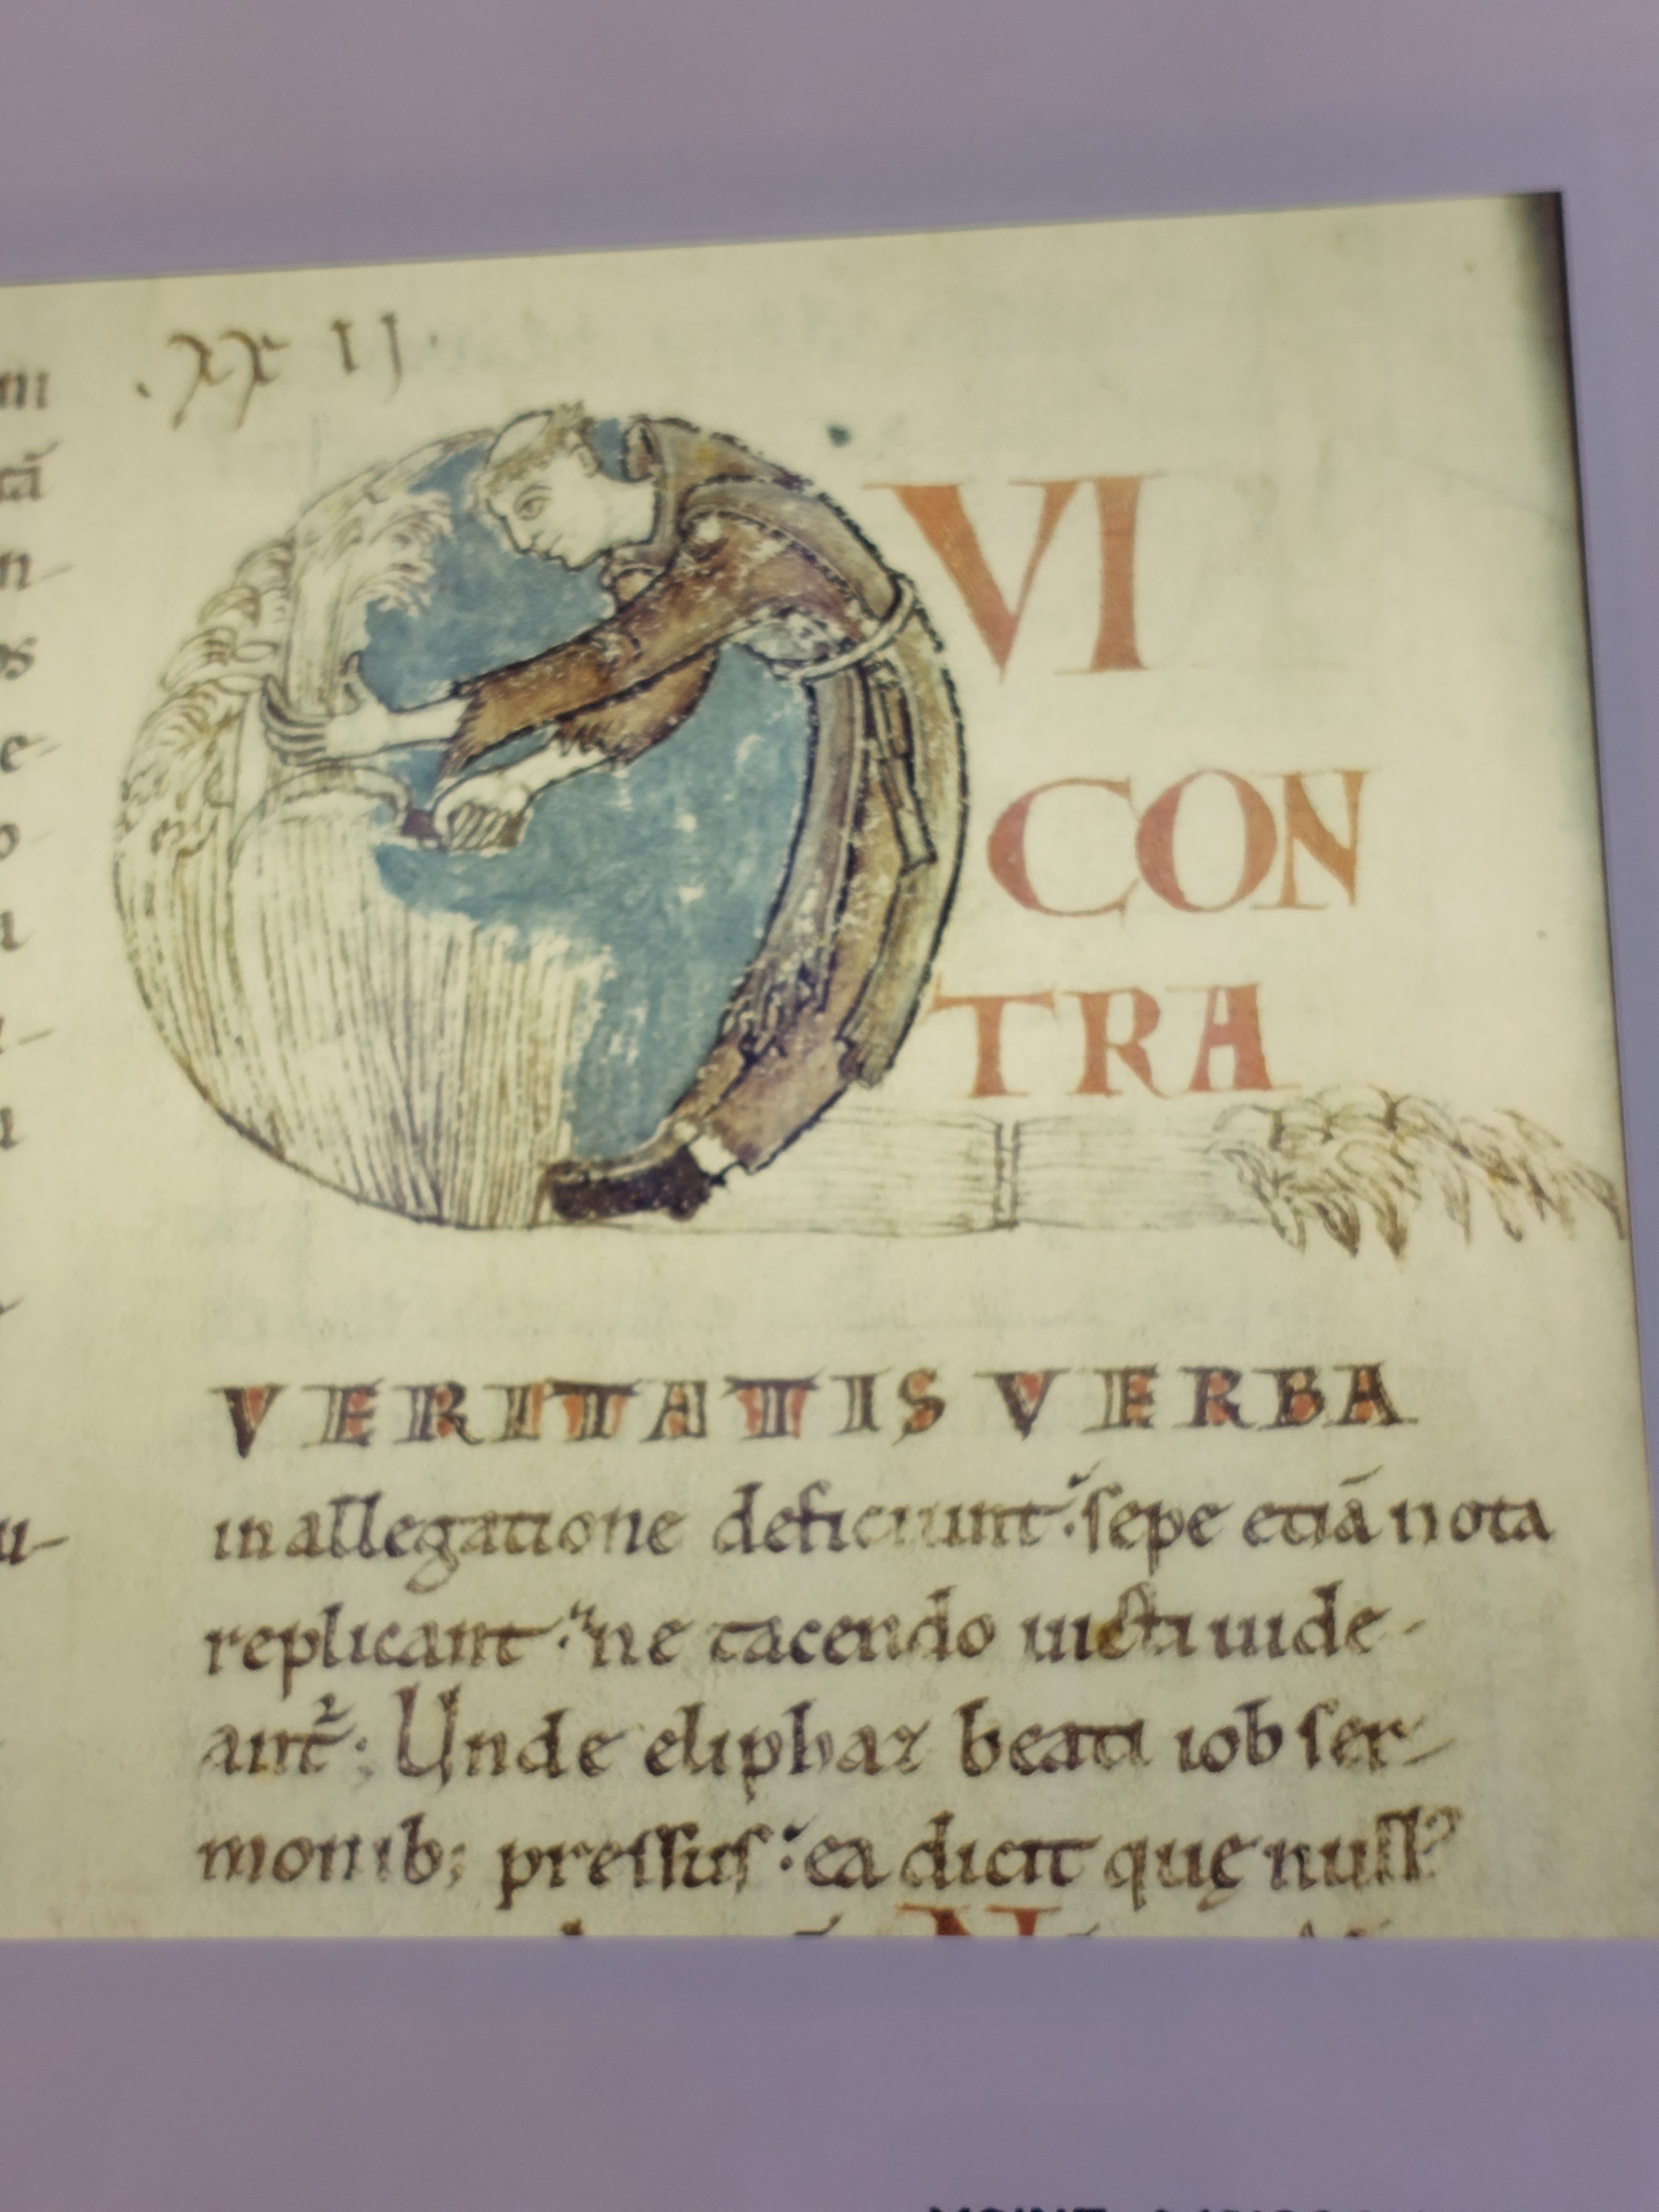 .xx ij.
QVI
CON
TRA
VERITATIS VERBA
in allegatione deficiunt. sepe etiā nota
replicant. ne tacendo uicta uide-
ant᷑. Unde eliphaz beati iob ser-
monib; pressus. ea dicit quę null